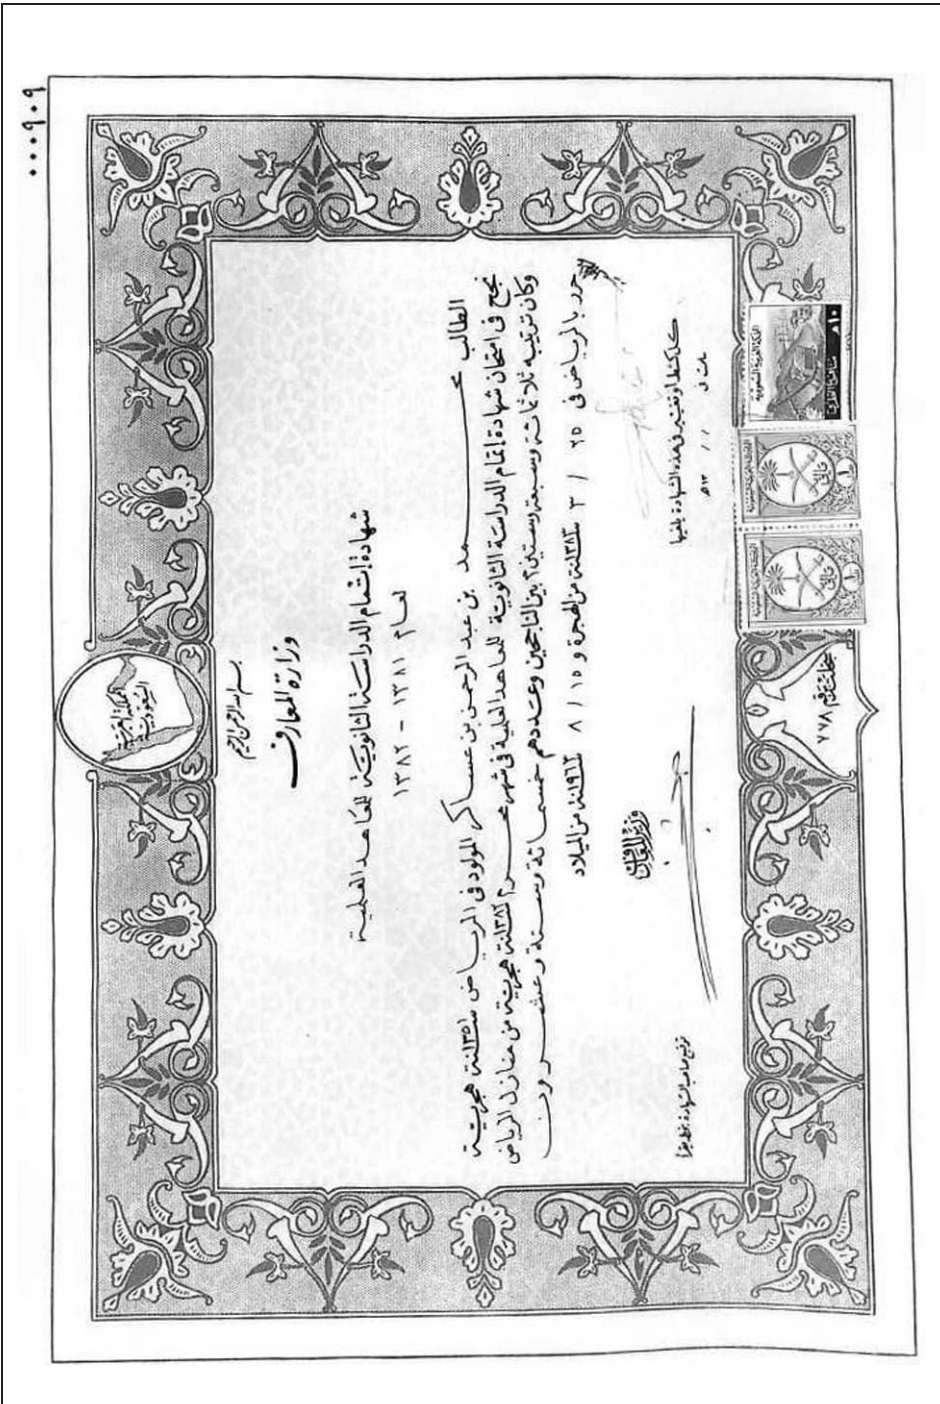 ٠٠٠٩٠٩
المملكة العربية السعودية
بسم الله الرحمن الرحيم
وزارة المعارف
شهادة إتمام الدراسة الثانوية للمعاهد العلمية
لعام ١٣٨١ - ١٣٨٢
الطالب محمد بن عبد الرحمن بن عساكر المولود في الرياض سنة ١٣٥١ هجرية
نجح في امتحان شهادة إتمام الدراسة الثانوية للمعاهد العلمية في شهر محرم سنة ١٣٨٢ هجرية من منازل الرياض
وكان ترتيبه ثلاثمائة وسبعة وستين بين الناجحين وعددهم خمسمائة وستة وعشرون
حرر بالرياض في ٢٥ / ٣ / سنة ١٣٨٢ من الهجرة و ١٥ / ٨ / سنة ١٩٦٢ من الميلاد
وزير المعارف
كل كشط أو تغيير في هذه الشهادة يلغيها
توقيع صاحب الشهادة
سجلت برقم ٧٧٨
المملكة العربية السعودية
١٠
ريال
ريال